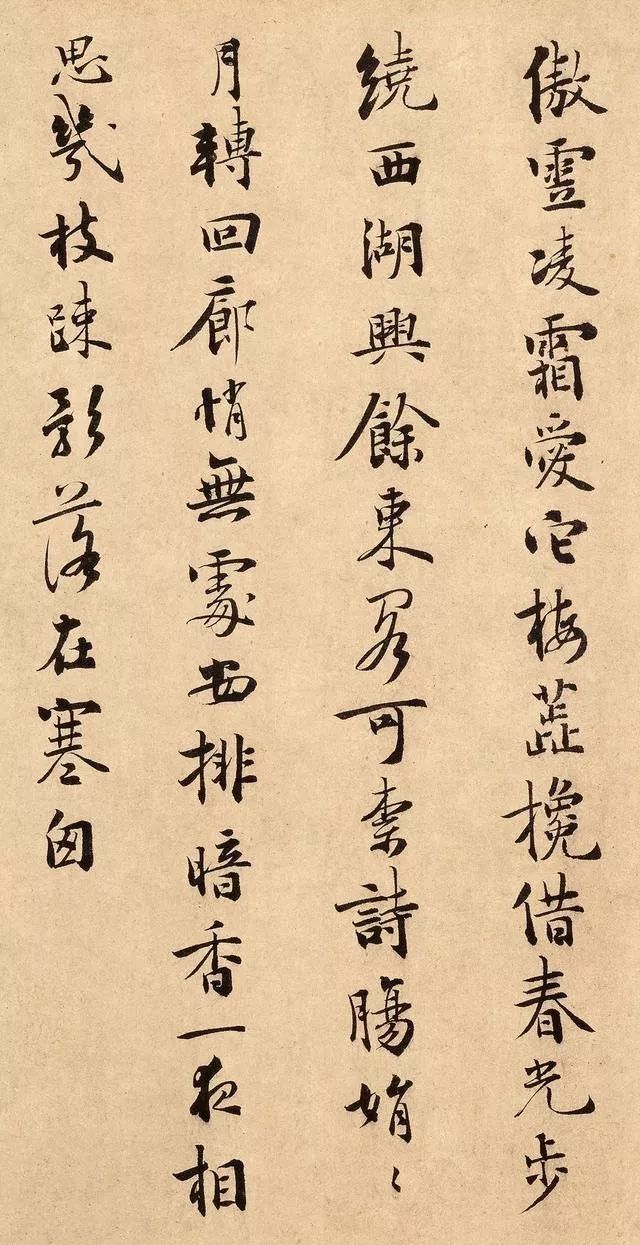 傲雪凌霜愛它梅蕋攙借春光步
繞西湖興餘東閣可柰詩膓娟〻
月轉回廊悄無處安排暗香一夜相
思幾枝踈影落在寒囱